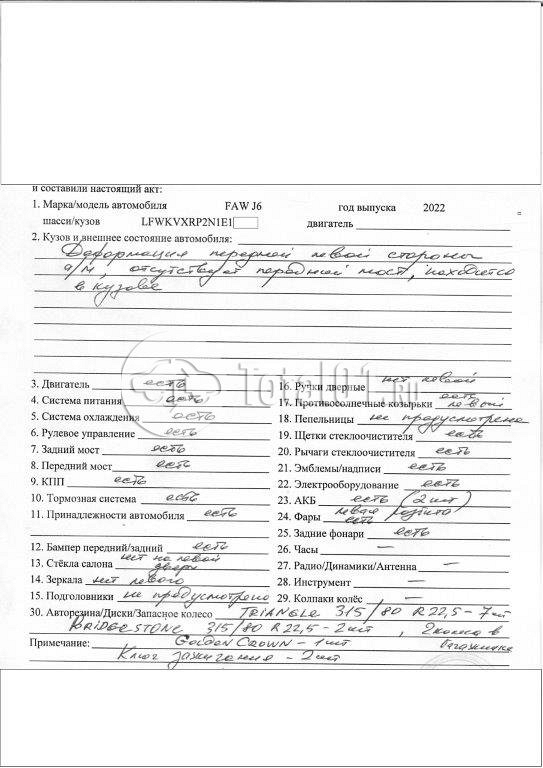 и составили настоящий акт:
1. Марка/модель автомобиля FAW J6 год выпуска 2022
шасси/кузов LFWKVXRP2N1E1 двигатель
2. Кузов и внешнее состояние автомобиля:
Деформация передней левой стороны
а/м, отсутствует передний мост, находится
в кузове
Total01.ru
3. Двигатель есть
4. Система питания есть
5. Система охлаждения есть
6. Рулевое управление есть
7. Задний мост есть
8. Передний мост есть
9. КПП есть
10. Тормозная система есть
11. Принадлежности автомобиля есть
12. Бампер передний/задний есть
13. Стёкла салона нет на левой двери
14. Зеркала нет левого
15. Подголовники не предусмотрено
16. Ручки дверные нет левой
17. Противосолнечные козырьки есть левый
18. Пепельницы не предусмотрена
19. Щетки стеклоочистителя есть
20. Рычаги стеклоочистителя есть
21. Эмблемы/надписи есть
22. Электрооборудование есть
23. АКБ есть (2 шт)
24. Фары левая разбита есть
25. Задние фонари есть
26. Часы —
27. Радио/Динамики/Антенна —
28. Инструмент —
29. Колпаки колёс —
30. Авторезина/Диски/Запасное колесо TRIANGLE 315/80 R 22,5 – 7 шт
BRIDGESTONE 315/80 R 22,5 – 2 шт , 2 колеса в
Примечание: GOLDEN CROWN – 1 шт багажнике
Ключ зажигания – 2 шт